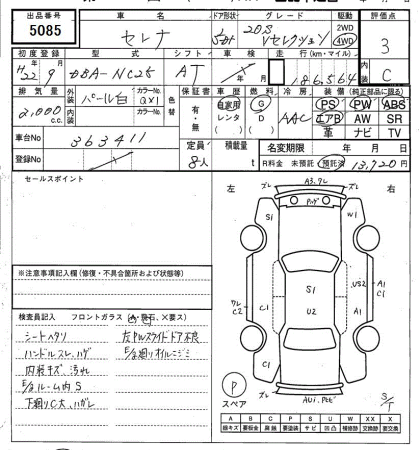 出品番号 車名 ドア形状 グレード 駆動 評価点
5085 セレナ 20S Vセレクション 2WD 4WD 3
初度登録 型式 シフト 車検 走行(km・マイル) 内装
H22/9 DBA-NC25 AT 186,564 C
排気量 外装 パール白 カラーNo. QX1 色替 保証書 車歴 燃料 冷房 装備(純正部品に限る)
2,000 c.c. 内装 カラーNo. 有・無 自家用 G AAC PS PW ABS
レンタ D エアB AW SR
( ) ( ) 革 ナビ TV
車台No 363411
定員 積載量 名変期限 年 月 日
登録No 8人 t R料金 未預託 預託済 13,720円
セールスポイント
左 右
ズレ A3.ワレ ズレ
S1 W1
ワレ C2 C1 S1 U2 US2 A1 C1
C1
ズレ ズレ
AU1.
P
スペア
※注意事項記入欄(修復・不具合箇所および状態等)
検査員記入 フロントガラス (A・飛石、X要ス)
シートヘタリ 左Pスライドドア不良
ハンドルスレ、ハゲ E/g廻りオイルニジミ
内装キズ 汚れ
E/gルーム内S
下廻りC大、ハガレ
A B C P S U W X XX
線キズ 要板金 腐蝕 要塗装 サビ 凹凸 補修跡 要交換 交換跡